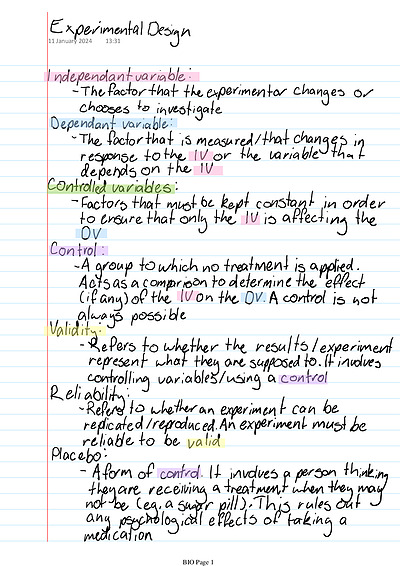 Experimental Design
11 January 2024 13:31
Independant variable:
- The factor that the experimentor changes or
chooses to investigate
Dependant variable:
- The factor that is measured/that changes in
response to the IV or the variable that
depends on the IV
Controlled variables:
- Factors that must be kept constant in order
to ensure that only the IV is affecting the
DV
Control:
- A group to which no treatment is applied.
Acts as a comparison to determine the effect
(if any) of the IV on the DV. A control is not
always possible
Validity:
- Refers to whether the results/experiment
represent what they are supposed to. It involves
controlling variables/using a control
Reliability:
- Refers to whether an experiment can be
replicated/reproduced. An experiment must be
reliable to be valid
Placebo:
- A form of control. It involves a person thinking
they are receiving a treatment when they may
not be (eg. a sugar pill). This rules out
any psychological effects of taking a
medication
BIO Page 1